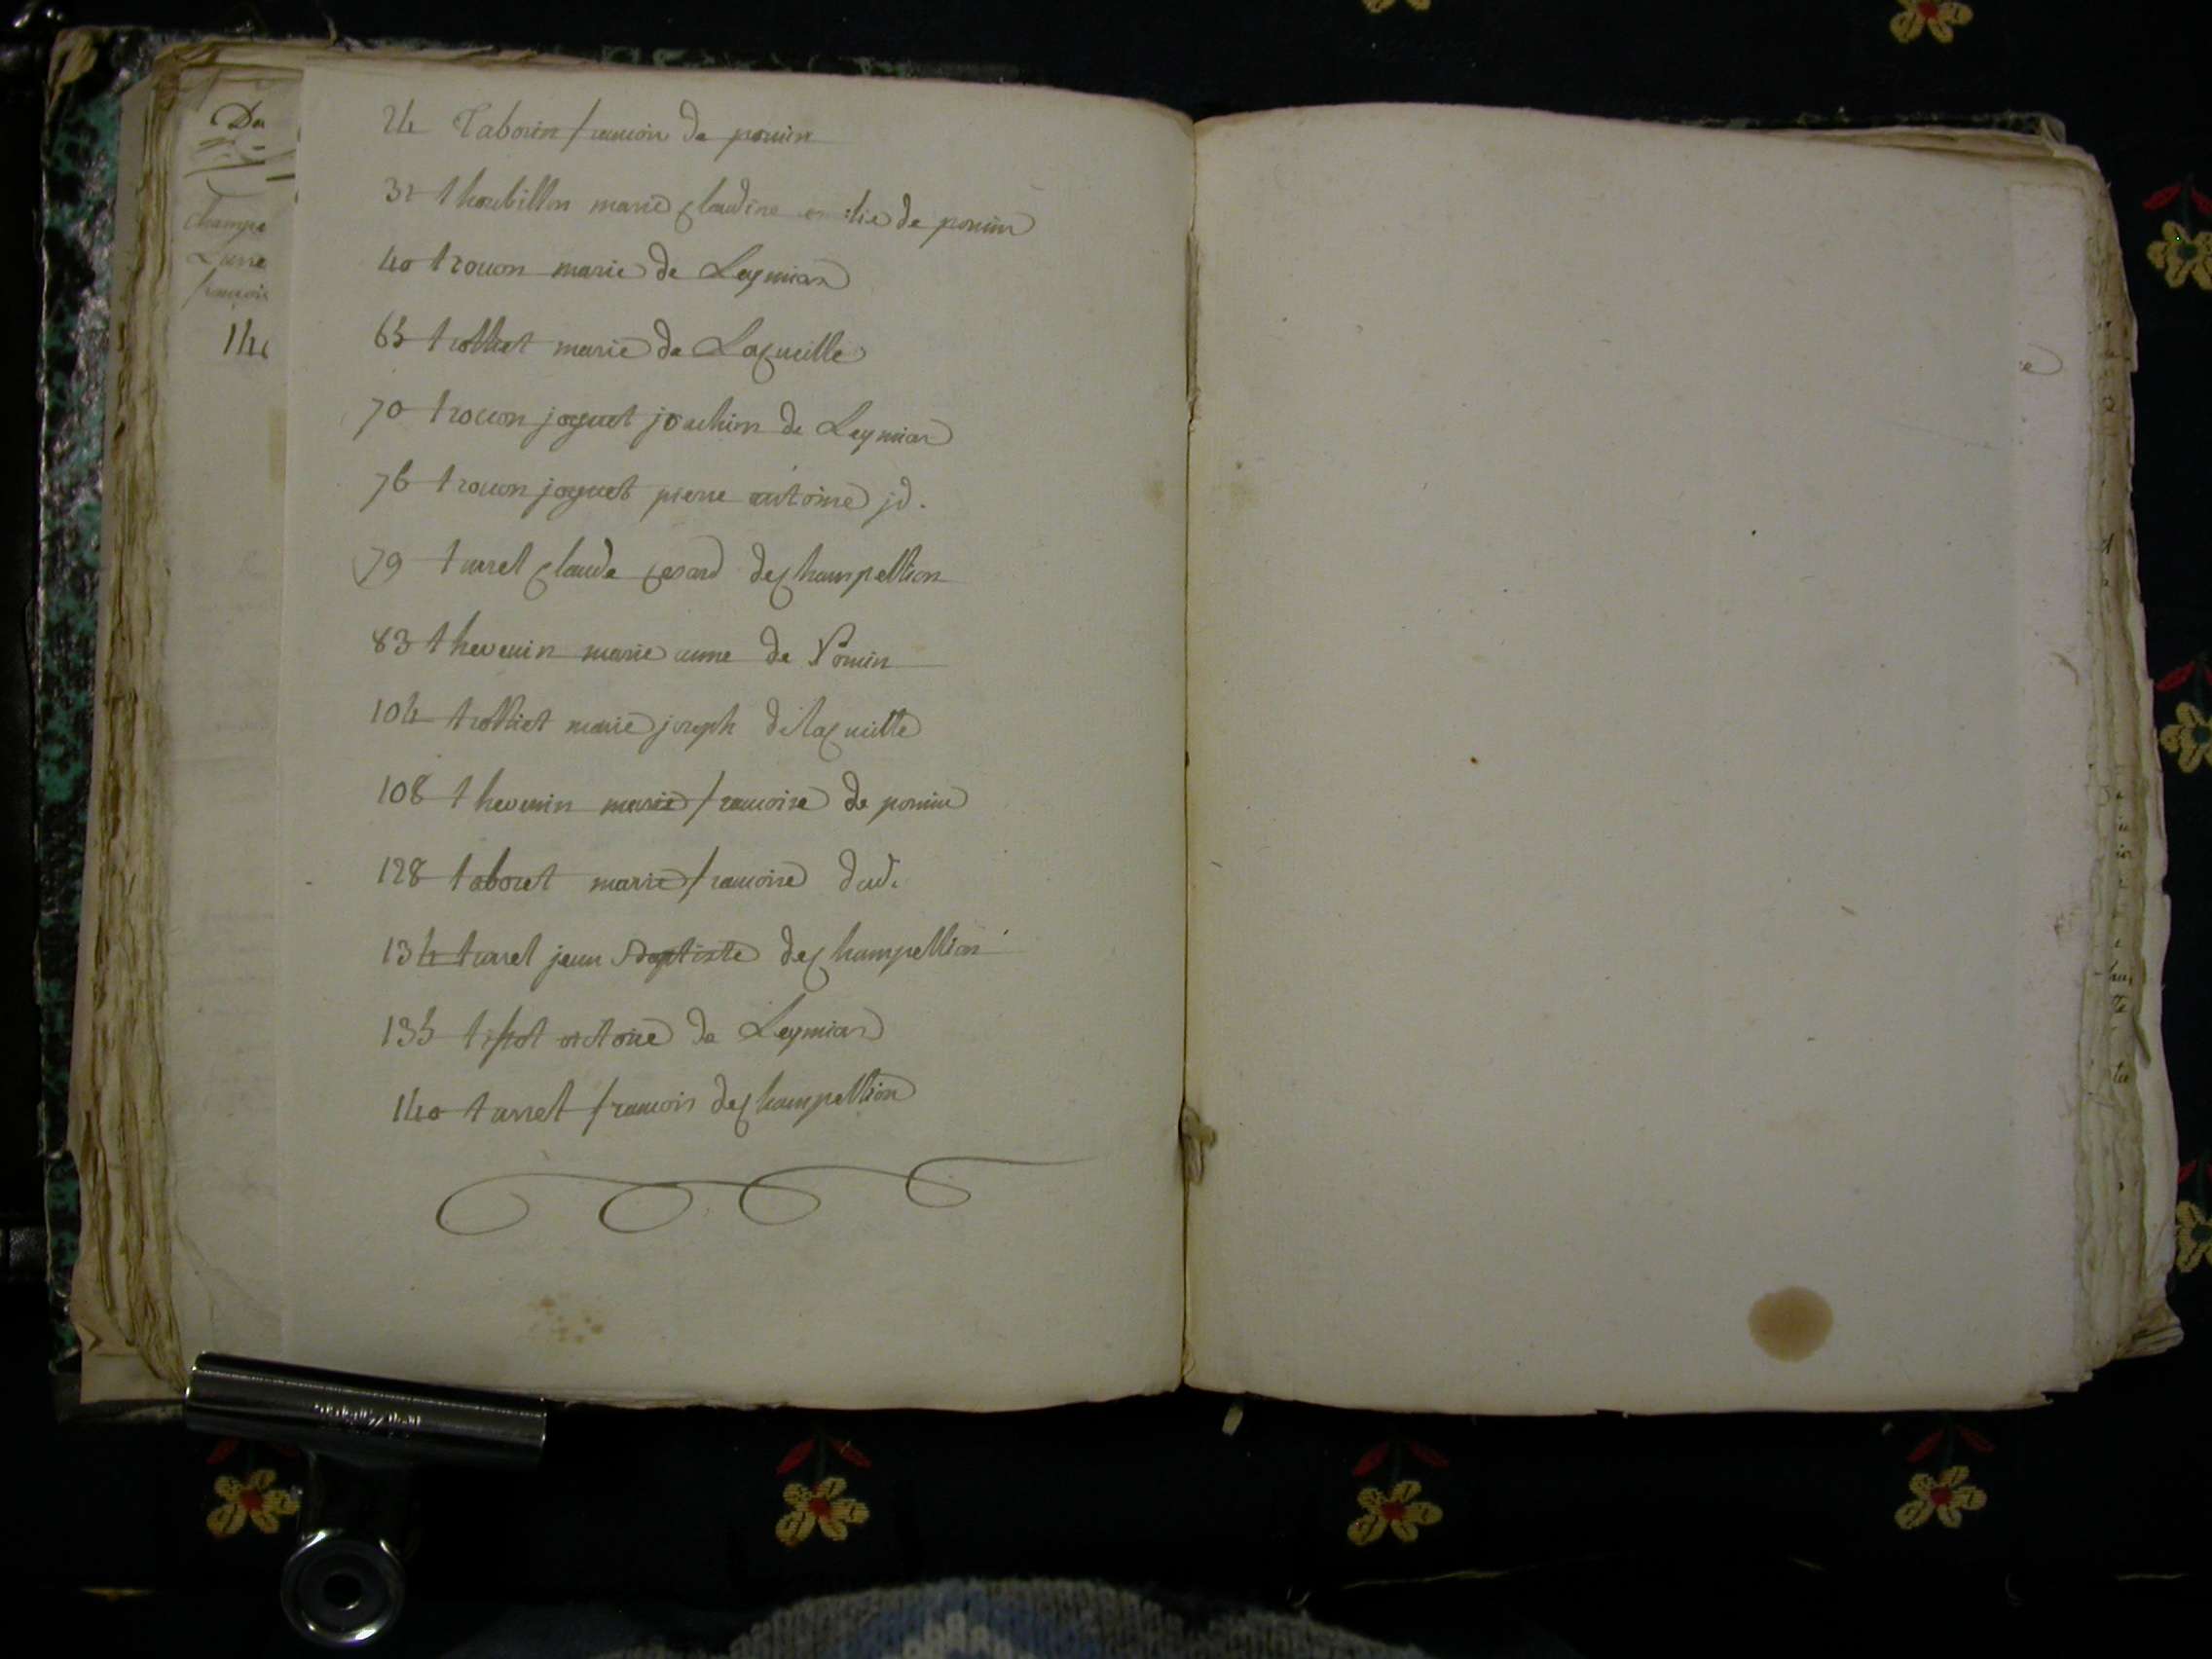 Du
champe
Lurre
francois
140
24 Taborin francois de pomin
32 thorbillon marie claudine de pomin
40 trouon marie de Leymiar
65 trolliet marie de Lacueille
70 trouon joguet joachim de Leymiar
76 trouon joguet pierre antoine jd.
79 turrel claude cesard dechampellion
83 thevenin marie anne de Pomin
104 trolliet marie joseph delacueille
108 thevenin marie francoise de pomin
128 taboret marie francoise dud.
134 turrel jean Baptiste dechampellion
135 tissot victoire de Leymiar
140 turrel francois dechampellion